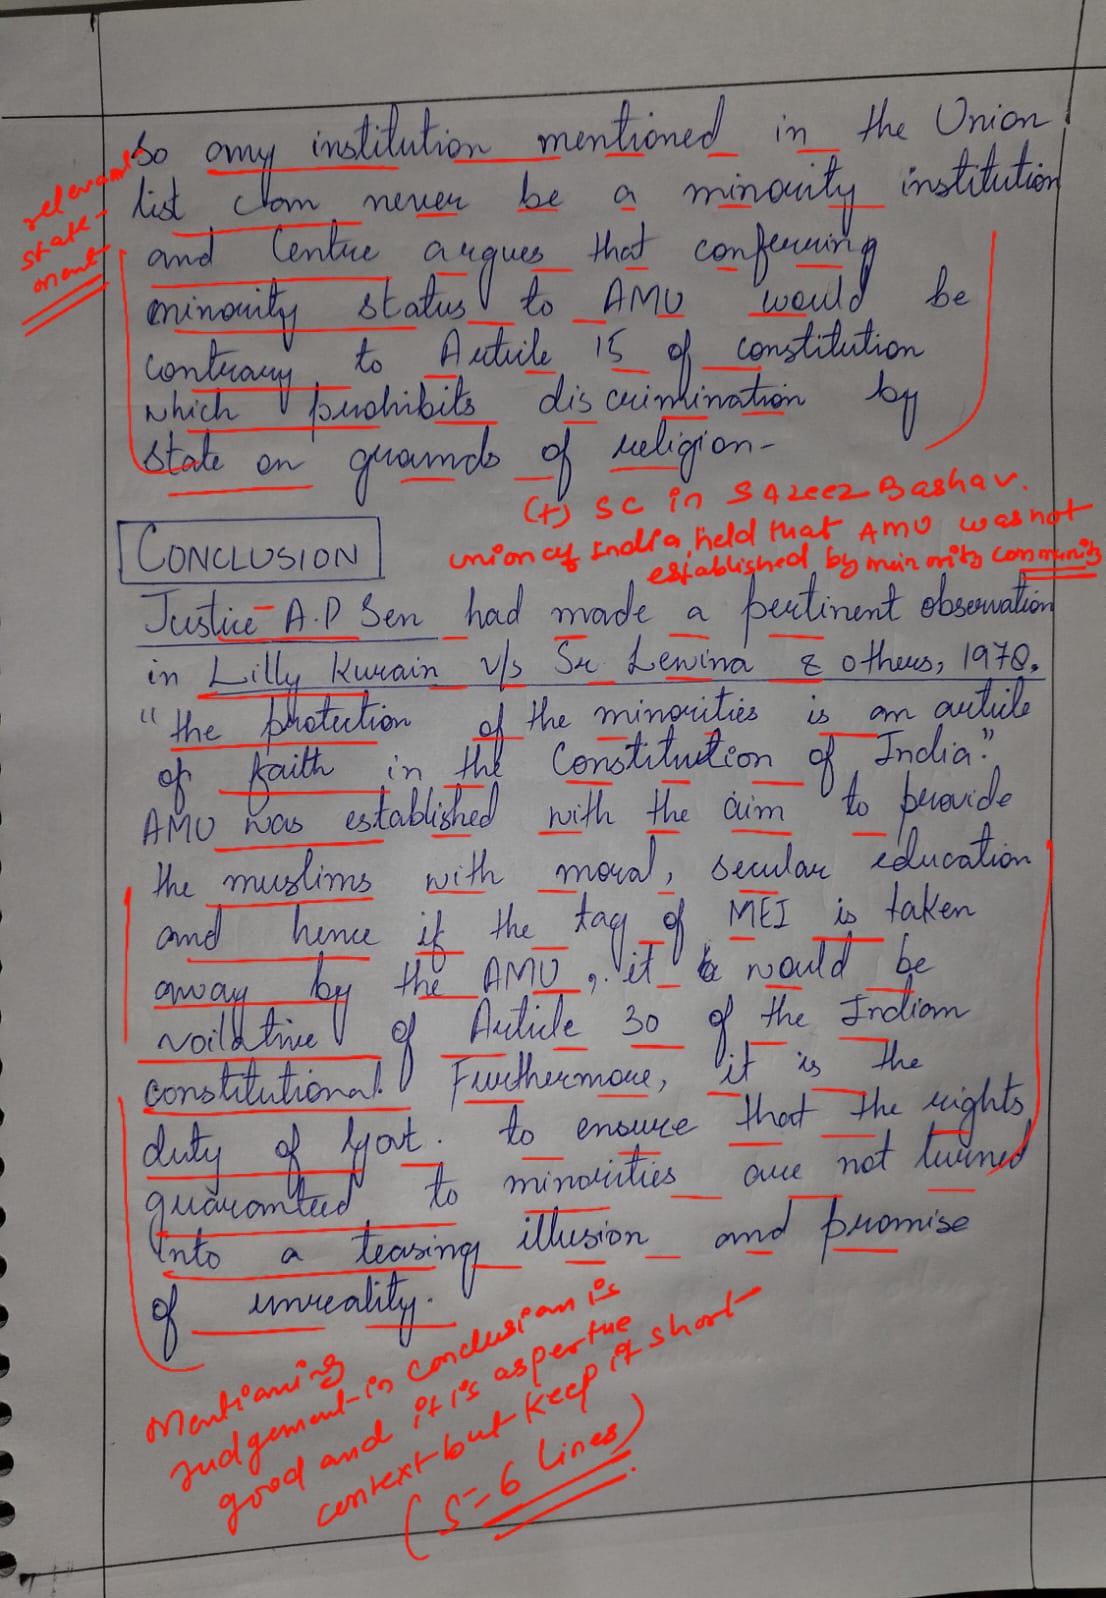 So any institution mentioned in the Union
list can never be a minority institution
relevant
state-
ment
and Centre argues that conferring
minority status to AMU would be
contrary to Article 15 of constitution
which prohibits discrimination by
state on grounds of religion-
(+) SC in S Azeez Basha v.
union of India, held that AMU was not
established by minority community
CONCLUSION
Justice A.P Sen had made a pertinent observation
in Lilly Kurain v/s Sr. Lewina & others, 1978,
"the protection of the minorities is an article
of faith in the Constitution of India".
AMU was established with the aim to provide
the muslims with moral, secular education
and hence if the tag of MEI is taken
away by the AMU, it would be
voilative of Article 30 of the Indian
constitutional. Furthermore, it is the
duty of Govt. to ensure that the rights
guaranteed to minorities are not turned
into a teasing illusion and promise
of unreality.
Mentioning
Judgement in conclusion is
good and it is as per the
context but keep it short
(5-6 lines)